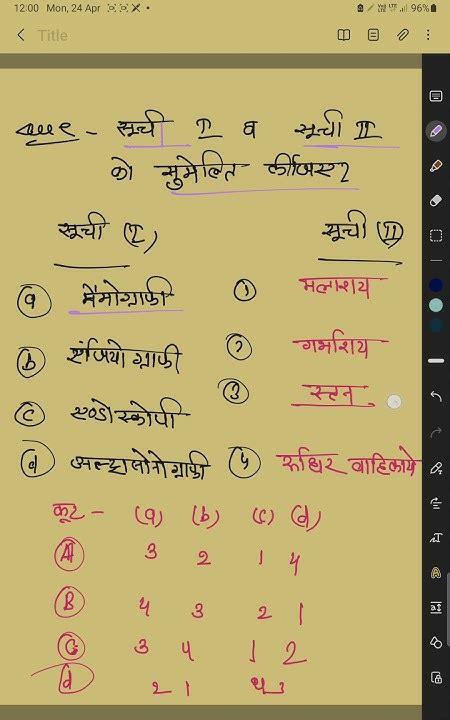 12:00 Mon, 24 Apr 96%
Title
Que - सूची I व सूची II
को सुमेलित कीजिए?
सूची (I) सूची (II)
(a) मैमोग्राफी (1) मलाशय
(b) एंजियोग्राफी (2) गर्भाशय
(c) एण्डोस्कोपी (3) स्तन
(d) अल्ट्रासोनोग्राफी (4) रुधिर वाहिकाये
कूट - (a) (b) (c) (d)
(A) 3 2 1 4
(B) 4 3 2 1
(C) 3 4 1 2
(d) 2 1 4 3